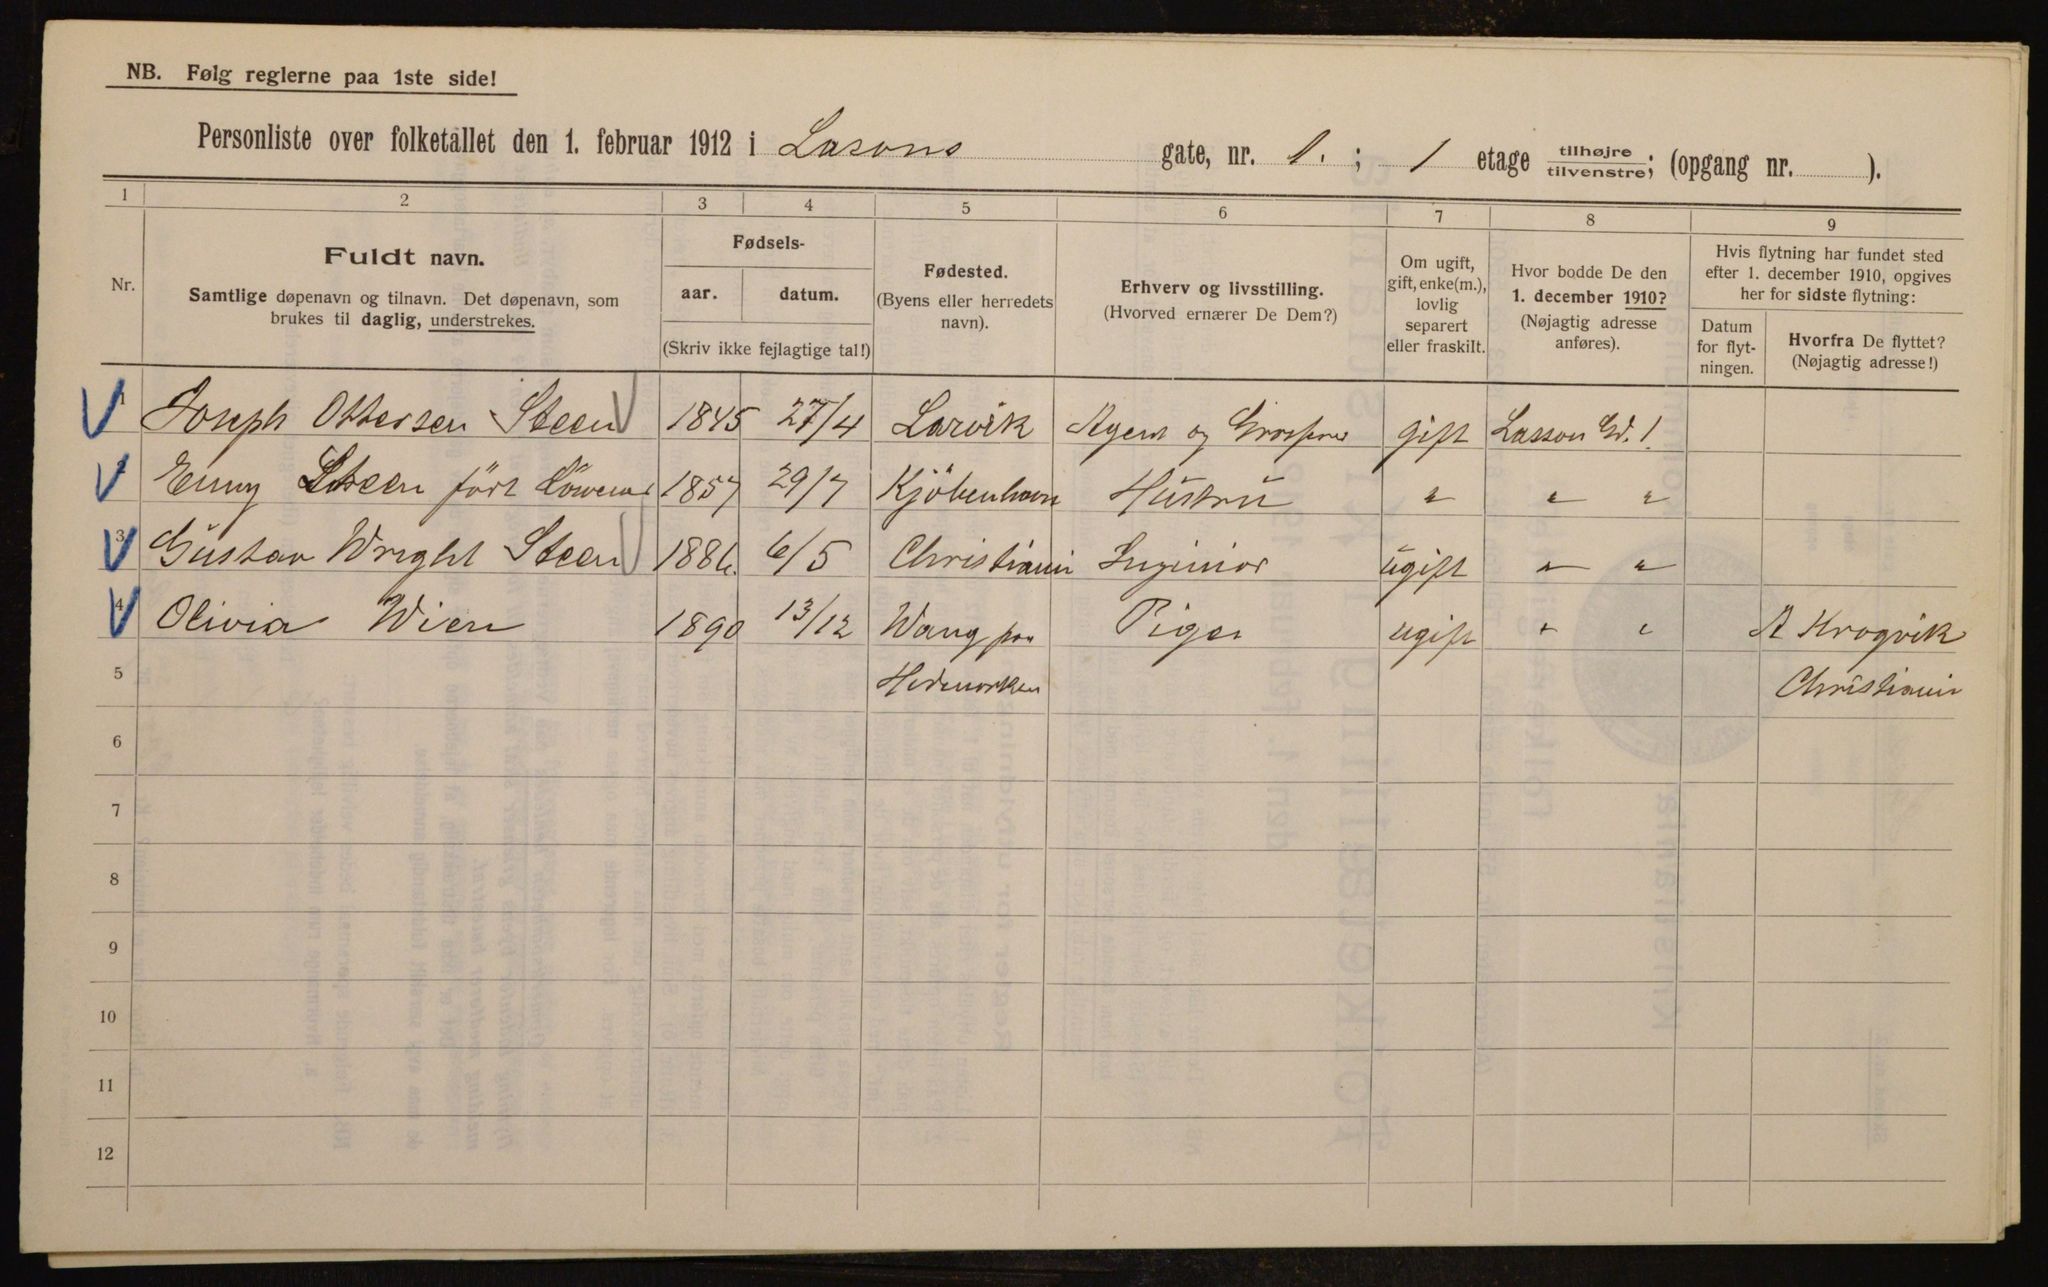 NB. Følg reglerne paa 1ste side!
Personliste over folketallet den 1. februar 1912 i Lasons gate, nr. 1. ; 1 etage tilhøjre tilvenstre; (opgang nr. ).
1 2 3 4 5 6 7 8 9
Nr.
Fuldt navn.
Samtlige døpenavn og tilnavn. Det døpenavn, som
brukes til daglig, understrekes.
Fødsels-
aar. datum.
(Skriv ikke fejlagtige tal!)
Fødested.
(Byens eller herredets
navn).
Erhverv og livsstilling.
(Hvorved ernærer De Dem?)
Om ugift,
gift, enke(m.),
lovlig
separert
eller fraskilt.
Hvor bodde De den
1. december 1910?
(Nøjagtig adresse
anføres).
Hvis flytning har fundet sted
efter 1. december 1910, opgives
her for sidste flytning:
Datum
for flyt-
ningen.
Hvorfra De flyttet?
(Nøjagtig adresse!)
1 Joseph Ottesen Steen 1845 27/4 Larvik Agent og gift Lasson Gd. 1
2 Enny Steen 1857 29/7 Kjöbenhavn Hustru " " "
3 Gustav Wright Steen 1886. 6/5 Christiania Ingeniør ugift " "
4 Olivia Wien 1890 13/12 Wang paa Pige ugift " " Krogvik
5 Hedemarken Christiania
6
7
8
9
10
11
12